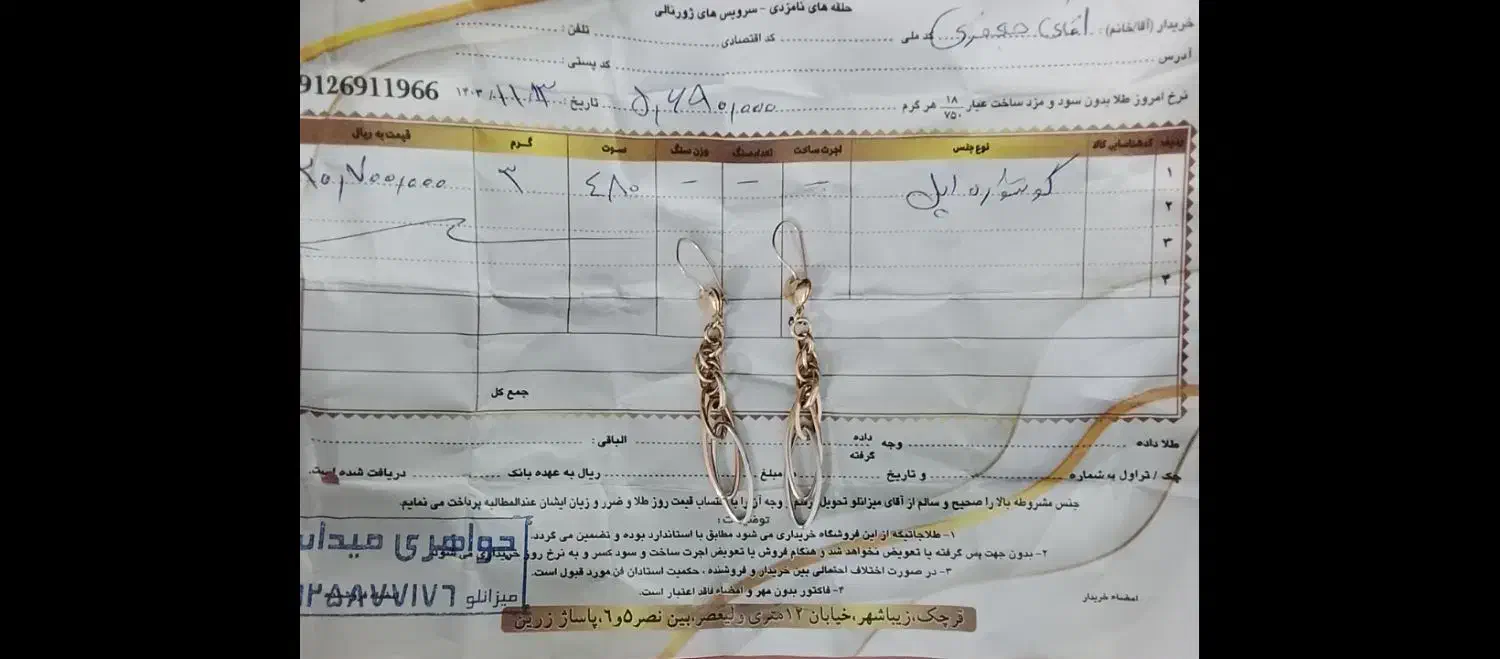 حلقه های نامزدی - سرویس های ژورنالی
خریدار (آقا/خانم): آقای جعفری کد ملی کد اقتصادی تلفن:
آدرس کد پستی:
نرخ امروز طلا بدون سود و مزد ساخت عیار ۱۸/۷۵۰ هر گرم تاریخ: ۱۴۰۳/
9126911966
ردیف کدشناسایی کالا نوع جنس اجرت ساخت تعدادسنگ وزن سنگ سوت گرم قیمت به ریال
۱ گوشواره اپل - - - ۴۸۰ ۳ ۲۰,۷۰۰,۰۰۰
۲
۳
۴
جمع کل
طلا داده وجه داده گرفته الباقی:
چک / تراول به شماره و تاریخ مبلغ ریال به عهده بانک دریافت شده است.
جنس مشروطه بالا را صحیح و سالم از آقای میزانلو تحویل وجه آن را قیمت روز طلا و ضرر و زیان ایشان عندالمطالبه پرداخت می نمایم.
توضیحات:
۱- طلاجاتیکه از این فروشگاه خریداری می شود مطابق با استاندارد بوده و تضمین می گردد.
۲- بدون جهت پس گرفته یا تعویض نخواهد شد و هنگام فروش یا تعویض اجرت ساخت و سود کسر و به نرخ روز خریداری می شود.
۳- در صورت اختلاف احتمالی بین خریدار و فروشنده، حکمیت استادان فن مورد قبول است.
۴- فاکتور بدون مهر و امضاء فاقد اعتبار است.
امضاء خریدار
جواهری
میزانلو ۱۲۵۸۷۷۱۷۶
قرچک،زیباشهر،خیابان ۱۲متری ولیعصر،بین نصر۵و۶،پاساژ زرین